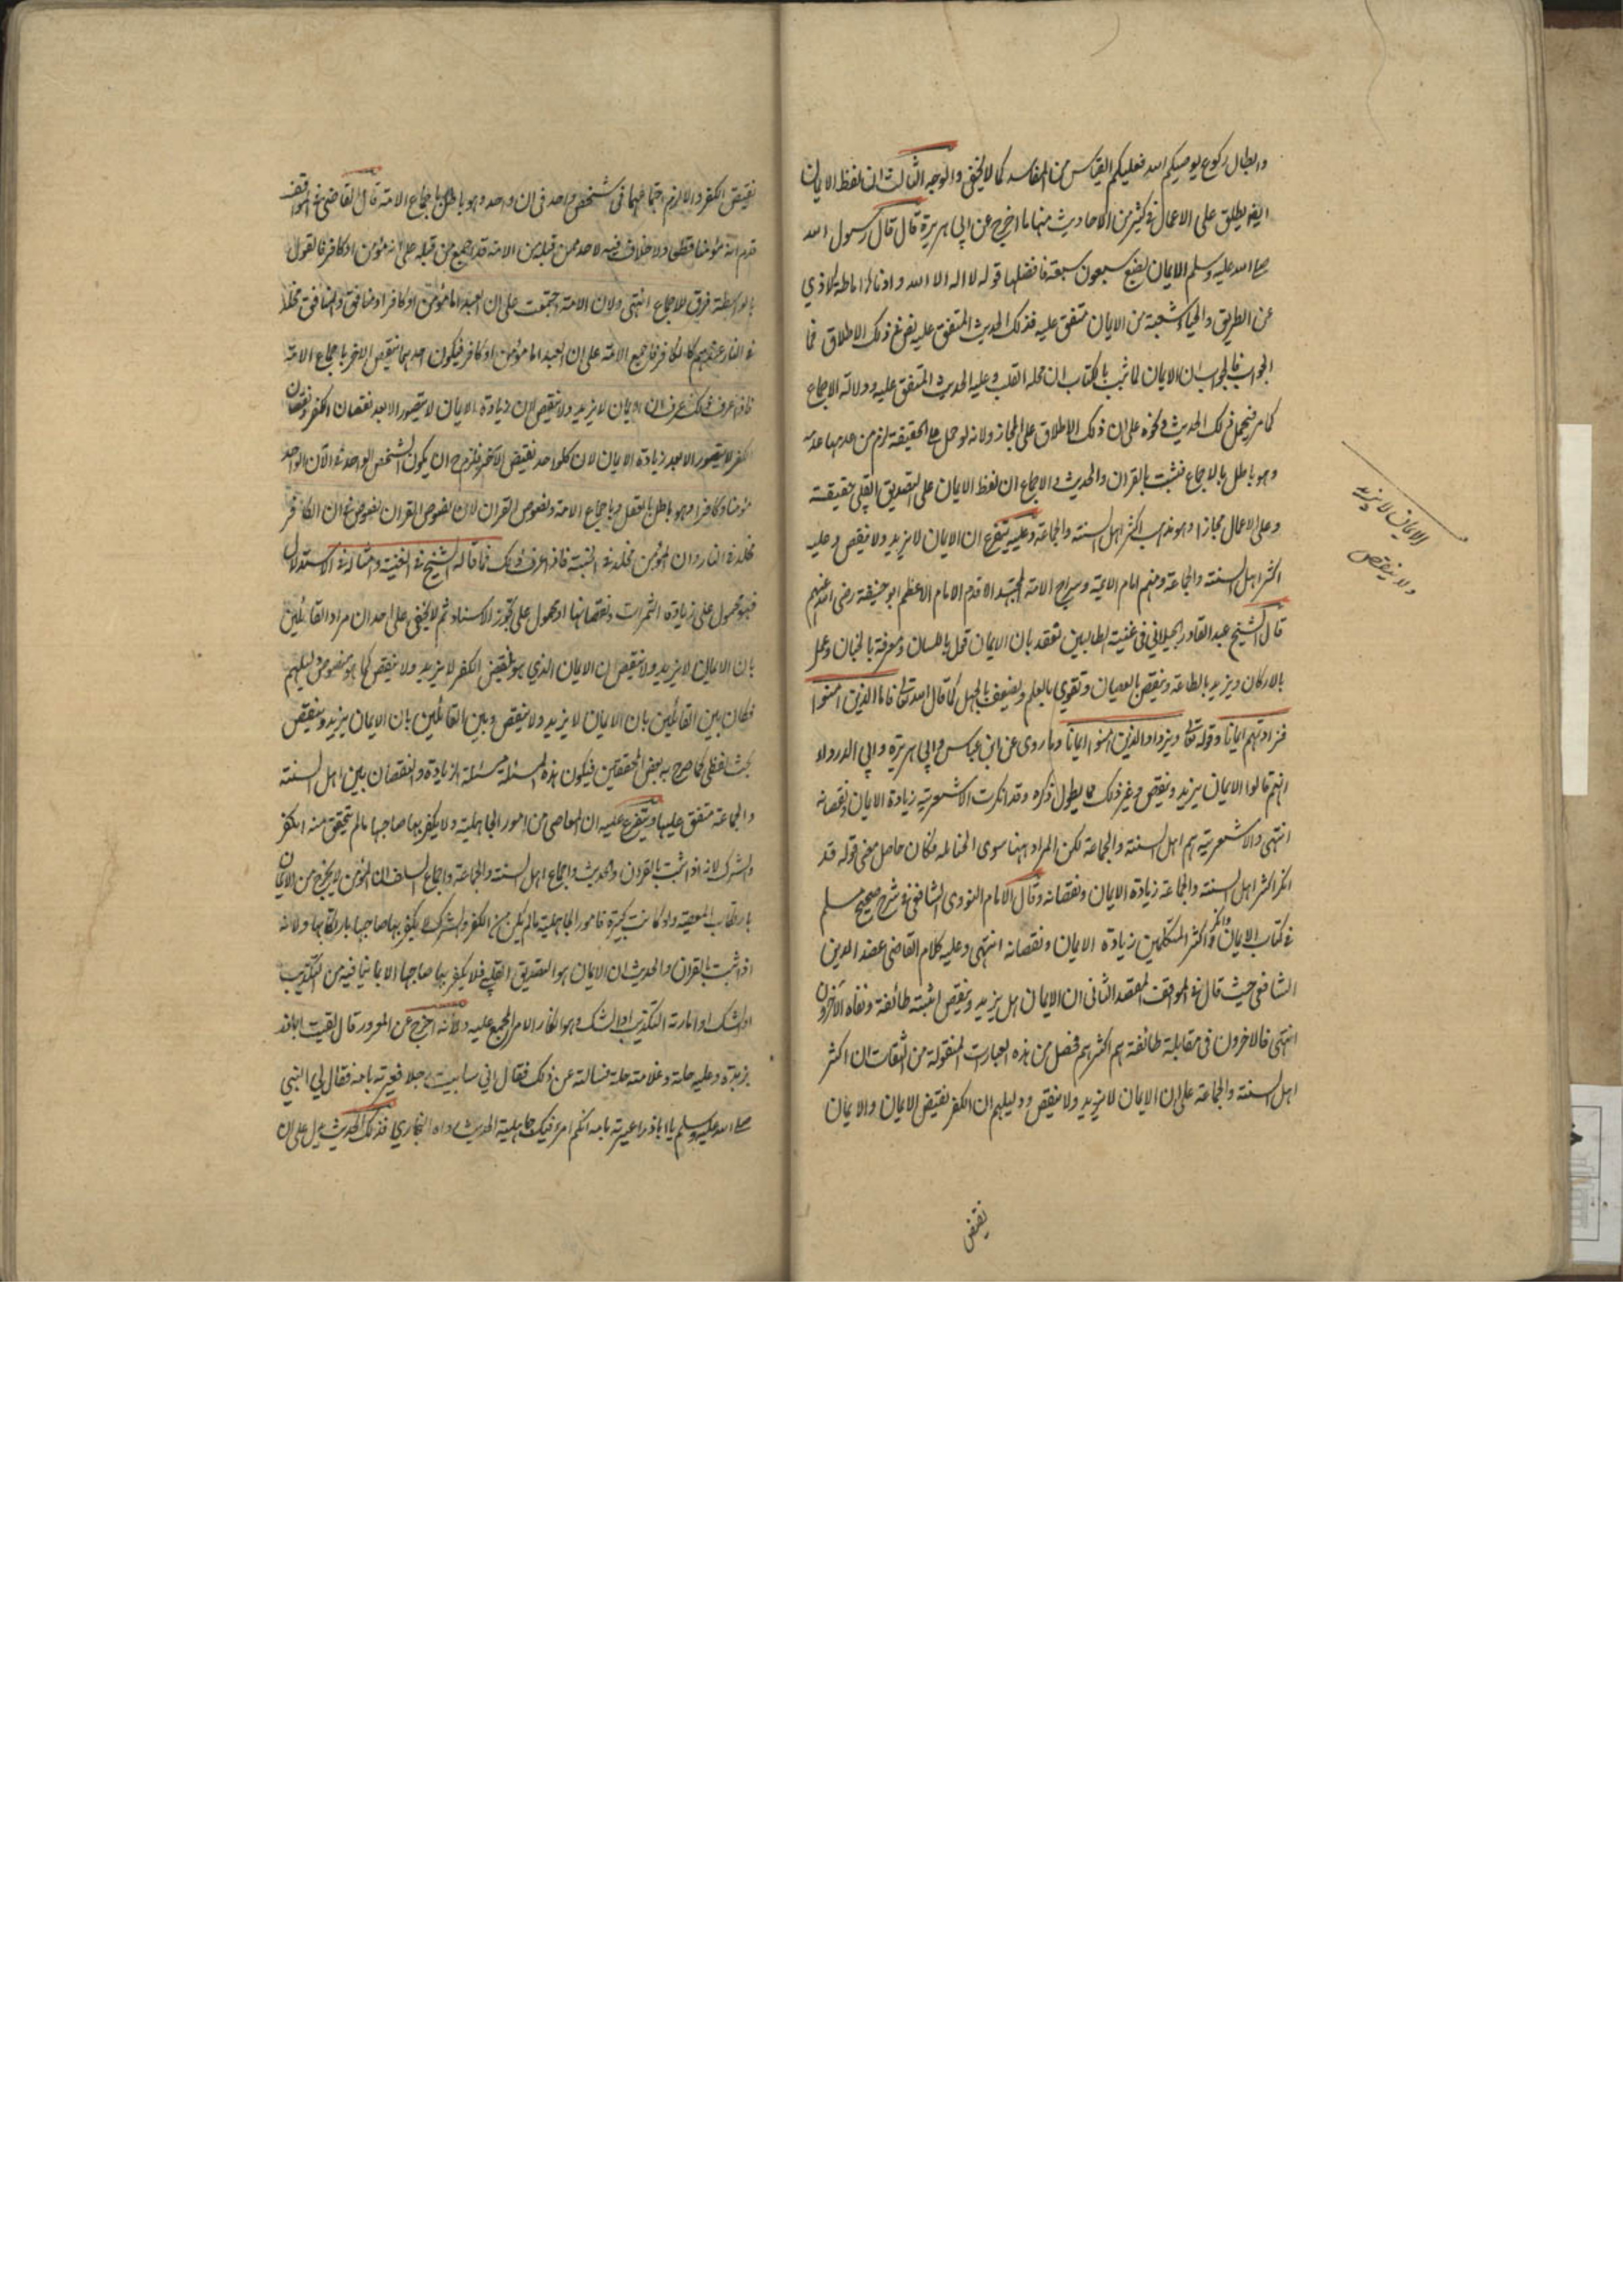 وابطال ركوع يوصيكم الله فعليكم القياس من المفاسد كما لا يخفى والوجه الثالث ان لفظ الايمان
ايضا يطلق على الاعمال في كثير من الاحاديث منها ما اخرج عن ابي هريرة قال قال رسول الله
صلى الله عليه وسلم الايمان بضع سبعون سبعة فافضلها قوله لا اله الا الله وادناها اماطة الاذي
عن الطريق والحياء شعبة من الايمان متفق عليه فذلك الحديث المتفق عليه نص في ذلك الاطلاق فما
الجواب فالجواب ان الايمان لما ثبت بالكتاب ان محله القلب وعليه الحديث المتفق عليه ودلالة الاجماع
كما مر فيحمل ذلك الحديث ونحوه على ان ذلك الاطلاق على المجاز ولانه لو حمل على الحقيقة لزم من عدمها عدمه
وهو باطل بالاجماع فثبت بالقران والحديث والاجماع ان لفظ الايمان على التصديق القلبي حقيقة
وعلى الاعمال مجازا وهو مذهب اكثر اهل السنة والجماعة وعليه يتفرع ان الايمان لا يزيد ولا ينقص وعليه
اكثر اهل السنة والجماعة ومنهم امام الائمة وسراج الامة المجتهد الاقدم الامام الاعظم ابو حنيفة رضى الله عنهم
قال الشيخ عبد القادر الجيلاني في غنية الطالبين نعتقد بان الايمان قول باللسان ومعرفة بالجنان وعمل
بالاركان ويزيد بالطاعة وينقص بالعصيان وتقوي بالعلم ويضعف بالجهل كما قال الله تعالى فاما الذين امنوا
فزادتهم ايمانا وقوله تعالى ويزداد الذين امنوا ايمانا وما روى عن ابن عباس وابي هريرة وابي الدرداء
انهم قالوا الايمان يزيد وينقص وغير ذلك مما يطول ذكره وقد انكرت الاشعرية زيادة الايمان ونقصانه
انتهى والاشعرية هم اهل السنة والجماعة لكن المراد هنا سوى الحنابلة فكان حاصل معنى قوله قد
انكر اكثر اهل السنة والجماعة زيادة الايمان ونقصانه وقال الامام النووى الشافعي في شرح صحيح مسلم
في كتاب الايمان وانكر اكثر المتكلمين زيادة الايمان ونقصانه انتهى وعليه كلام القاضى عضد الدين
الشافعي حيث قال في المواقف المقصد الثاني ان الايمان هل يزيد وينقص اثبته طائفة ونفاه الآخرون
انتهى فالاخرون في مقابلة طائفة هم اكثرهم فحصل من هذه العبارات المنقولة من الثقات ان اكثر
اهل السنة والجماعة على ان الايمان لا يزيد ولا ينقص ودليلهم ان الكفر نقيض الايمان والايمان
الايمان لا يزيد
ولا ينقص
نقيض
نقيض الكفر والا لزم اجتماعهما في شخص واحد في ان واحد وهو باطل باجماع الامة قال القاضى في المواقف
قدم انه مؤمنا قطعا ولا خلاف فيه لاحد ممن قبله من الامة قد اجمع من قبله على انه مؤمن او كافر فالقول
بالواسطة خرق للاجماع انتهى ولان الامة اجتمعت على ان العبد اما مؤمن او كافر او منافق والمنافق مخلد
في النار عندهم كالكافر فاجمع الامة على ان العبد اما مؤمن او كافر فيكون احدهما نقيض الاخر باجماع الامة
فاذا عرفت ذلك عرف ان الايمان لا يزيد ولا ينقص لان زيادة الايمان لا يتصور الا بعد نقصان الكفر ونقصان
الكفر لا يتصور الا بعد زيادة الايمان لان كلواحد نقيض الآخر فيلزم ح ان يكون الشخص الواحد في الآن الواحد
مؤمنا وكافرا وهو باطل بالعقل وباجماع الامة ونصوص القران لان نصوص القران نصوص في ان الكافر
مخلد في النار وان المؤمن مخلد في الجنة فاذا عرف ذلك فما قاله الشيخ في الغنية وامثاله في الاستدلال
فهو محمول على زيادة الثمرات ونقصانها او محمول على تجوز الاسناد ثم لا يخفى على احد ان مراد القائلين
بان الايمان لا يزيد ولا ينقص ان الايمان الذي هو نقيض الكفر لا يزيد ولا ينقص كما هو منصوص دليلهم
فكان بين القائلين بان الايمان لا يزيد ولا ينقص وبين القائلين بان الايمان يزيد وينقص
بحث لفظي كما صرح به بعض المحققين فيكون هذه المسئلة مسئلة الزيادة والنقصان بين اهل السنة
والجماعة متفق عليها ويتفرع عليه ان المعاصى من امور الجاهلية ولا يكفر بها صاحبها ما لم يتحقق منه الكفر
والشرك لانه اذا ثبت بالقران والحديث واجماع اهل السنة والجماعة واجماع السلف ان المؤمن لا يخرج من الايمان
بارتكاب المعصية ولو كانت كبيرة فامور الجاهلية ما لم يكن من الكفر والشرك لا يكفر بها صاحبها بارتكابها ولانه
اذا ثبت بالقران والحديث ان الايمان هو التصديق القلبي فلا يكفر بها صاحبها الا بما ينافيه من التكذيب
او الشك او امارة التكذيب او الشك وهو انكار الامر المجمع عليه ولانه اخرج عن المعرور قال لقيت اباذر
بربذة وعليه حلة وغلامه حلة فسالته عن ذلك فقال اني ساببت رجلا فعيرته بامه فقال لي النبي
صلى الله عليه وسلم يا اباذر اعيرته بامه انكم امرء فيك جاهلية الحديث رواه البخاري فذلك الحديث دليل على ان